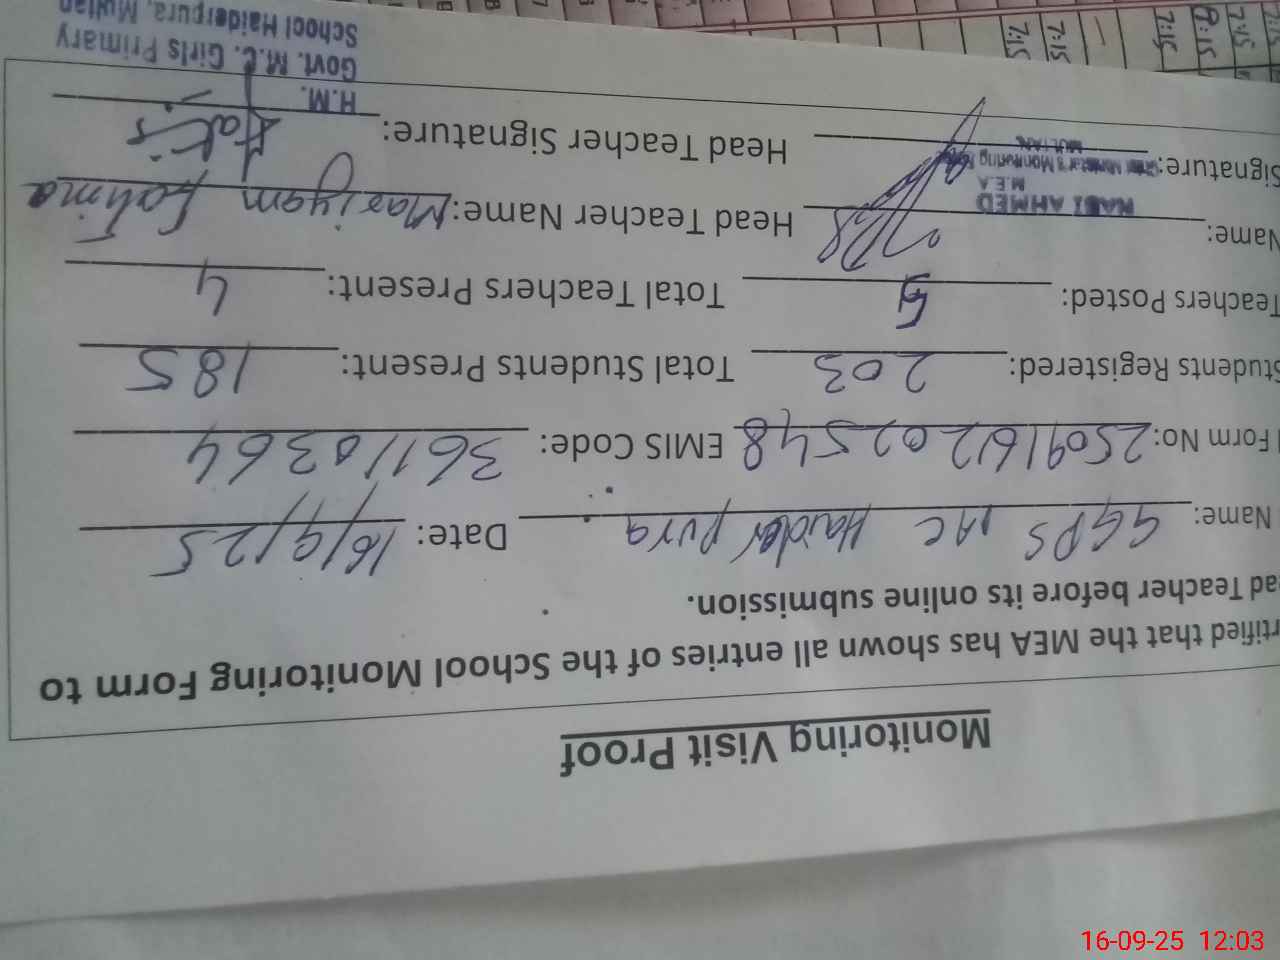 Monitoring Visit Proof
rtified that the MEA has shown all entries of the School Monitoring Form to
ad Teacher before its online submission.
Name: GGPS MC Haider pura Date: 16/9/25
Form No: 2509161202548 EMIS Code: 36110364
Students Registered: 203 Total Students Present: 185
Teachers Posted: 5 Total Teachers Present: 4
Name: NABI AHMED Head Teacher Name: Mariyam Fatima
M.E.A
Signature: Chief Minister's Monitoring Head Teacher Signature:
MULTAN
H.M.
Govt. M.C. Girls Primary
School Haiderpura, Multan
7:15
7:15
7:15
8:15
7:45
16-09-25 12:03